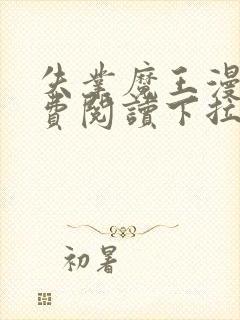 失業魔王漫
費閱讀下拉
初暑